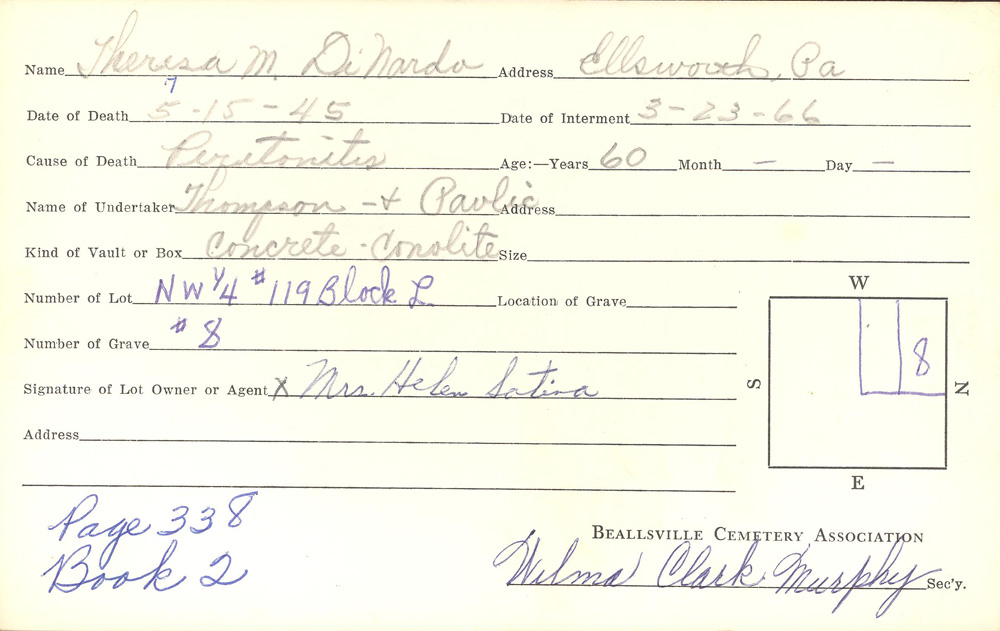 Name Theresa M. DiNardo Address Ellsworth, Pa
7
Date of Death 5-15-45 Date of Interment 3-23-66
Cause of Death Peritonitis Age:—Years 60 Month — Day —
Name of Undertaker Thompson - + Pavlic Address
Kind of Vault or Box Concrete - Conolite Size
Number of Lot NW 1/4 # 119 Block L Location of Grave
Number of Grave # 8
Signature of Lot Owner or Agent X Mrs. Helen Sativa
Address
W
S
8
N
E
Page 338
Book 2
BEALLSVILLE CEMETERY ASSOCIATION
Wilma Clark Murphy Sec'y.